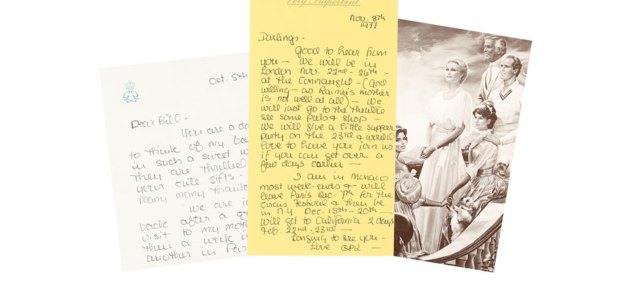 Oct. 5th
Dear Bill -
You are a da
to think of my ba
in such a sweet w
They are thrilled
your cute gifts -
Many many thank
We are in
back after a g
visit to my moth
then a week in
another in Paris
Very Important
Nov. 8th
1977
Darlings -
Good to hear from
you - We will be in
London Nov. 22nd - 26th -
at the Connaught - (God
willing - as Rainier's mother
is not well at all) - We
will just go to the theatre
see some pals & shop -
We will give a little supper
party on the 23rd & would
love to have you join us
if you can get over a
few days earlier -
I am in Monaco
most week-ends & will
leave Paris Dec. 7th for the
Circus Festival & then be
in N.Y. Dec. 15th - 20th -
will get to California 2 days
Feb. 22nd - 23rd -
Longing to see you -
Love